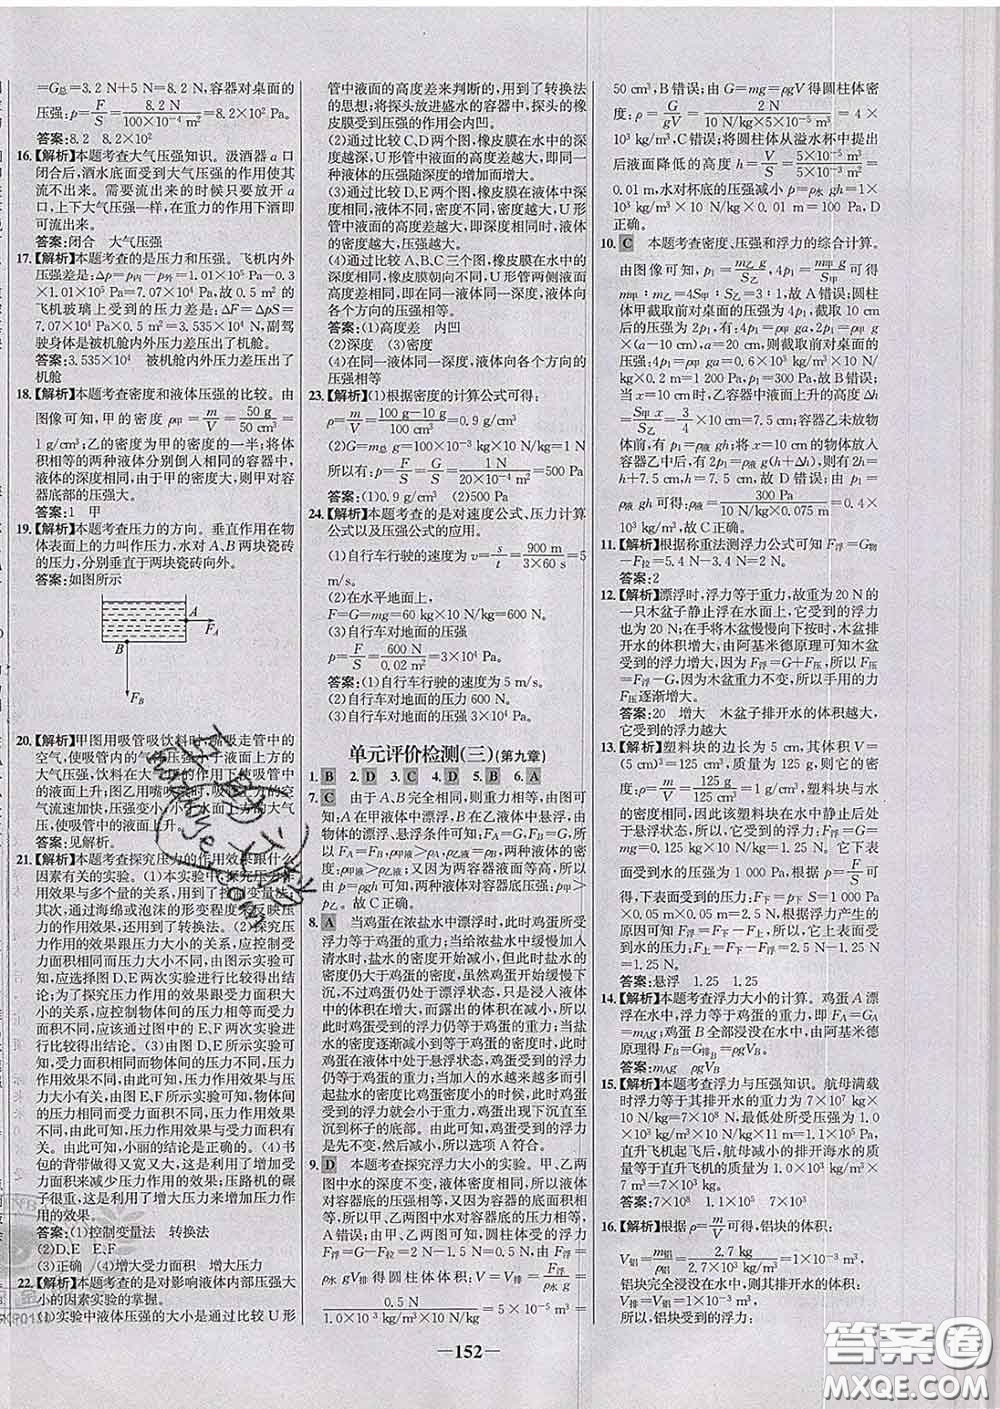 =G总=3.2 N+5 N=8.2 N,容器对桌面的
压强:p=F/S=8.2 N/(100×10⁻⁴ m²)=8.2×10² Pa。
答案:8.2 8.2×10²
16.【解析】本题考查大气压强知识。汲酒器 a 口
闭合后,酒水底面受到大气压强的作用使其
流不出来。需要流出来的时候只要放开 a
口,上下大气压强一样,在重力的作用下酒即
可流出来。
答案:闭合 大气压强
17.【解析】本题考查的是压力和压强。飞机内外
压强差是:Δp=p内-p外=1.01×10⁵ Pa-0.3
×1.01×10⁵ Pa=7.07×10⁴ Pa,故 0.5 m² 的
飞机玻璃上受到的压力差是:ΔF=ΔpS=
7.07×10⁴ Pa×0.5 m²=3.535×10⁴ N,副驾
驶身体是被机舱内外压力差压出了机舱。
答案:3.535×10⁴ 被机舱内外压力差压出了
机舱
18.【解析】本题考查密度和液体压强的比较。由
图像可知,甲的密度 ρ甲=m/V=50 g/50 cm³=
1 g/cm³;乙的密度为甲的密度的一半;将体
积相等的两种液体分别倒入相同的容器中,
液体的深度相同,由于甲的密度大,故甲对容
器底部的压强大。
答案:1 甲
19.【解析】本题考查压力的方向。垂直作用在物
体表面上的力叫作压力,水对 A、B 两块瓷砖
的压力,分别垂直于两块瓷砖向外。
答案:如图所示
A
FA
B
FB
20.【解析】甲图用吸管吸饮料时,嘴吸走管中的
空气,使吸管内的气体压强小于外面的大气
压强,饮料在大气压强的作用下通过吸管使
液面上升;图乙用嘴吹气时,a 管上方的空
气流速加快,压强变小,小于水面上方的大气
压,使吸管中的液面上升。
答案:见解析。
21.【解析】本题考查探究压力的作用效果跟什么
因素有关的实验。(1)本实验中,探究压力的作
用效果与多个量的关系,用到了控制变量法;
通过海绵或泡沫的形变程度来反映压
力的作用效果,还用到了转换法。(2)探究压
力作用的效果跟压力大小的关系,应控制受
力面积大小相等而压力大小不同,由图示实
验可知,应选择图 D、E 两次实验进行比较得出结
论;为了探究压力作用的效果跟受力面积大小的
关系,应控制物体间的压力相等而受力面积
不同,应该通过图中的 E、F 两次实验进
行比较得出结论。(3)由图 D、F 所示实验可
知,受力面积不同物体间的压力不同,压力作
用效果不同,由此可知,压力作用效果与压力
大小有关,由 E、F 所示实验可知,物体间的
压力相等而受力面积不同,压力作用效果不
同,由此可知,压力作用效果与受力面积大小
有关,由此可知,小丽的结论是正确的。(4)书
包的背带做得又宽又大,这是通过增大受力
面积来减小压力的作用效果,压路机的碾
子很重,这是通过增大压力来增加压力
作用的效果。
答案:(1)控制变量法 转换法
(2)D、E E、F
(3)正确 (4)增大面积 增大压力
22.【解析】本题考查的是对影响液体内部压强大
小的因素实验的掌握。
(1)实验中液体压强的大小是通过比较 U 形
管中液面的高度差来判断的,用到了转换法
的思想;将探头放进盛水的容器中,探头的橡
皮膜受到压强的作用会内凹。
(2)通过比较 B、C 两个图,橡皮膜在水中的深
度不同,U 形管中液面的高度差不同,即:同
一种液体的压强随深度的增加而增大。
(3)通过比较 D、E 两个图,橡皮膜在液体中深
度相同,液体不同,密度不同,密度越大,U 形
管中液面的高度差越大,即:液体的密度越
大,压强越大。
(4)通过比较 A、B、C 三个图,橡皮膜在水中的
深度相同,橡皮膜朝向不同,U 形管两侧液面
高度差相同,即:液体在同一深度,液体内部
向各个方向的压强相等。
答案:(1)高度差 内凹
(2)深度 (3)密度
(4)在同一液体同一深度,液体向各个方向的
压强相等
23.【解析】(1)根据密度的计算公式可得:
ρ=m/V=(100 g-10 g)/100 cm³=0.9 g/cm³
(2)G=m总g=100×10⁻³ kg×10 N/kg=1 N
所以有:p=F/S=G/S=1 N/(20×10⁻⁴ m²)=500 Pa
答案:(1)0.9 g/cm³ (2)500 Pa
24.【解析】本题考查的是对速度公式、压力计算
公式以及压强公式的应用。
(1)自行车行驶的速度为 v=s/t=900 m/(3×60 s)=5
m/s。
(2)在水平地面上,
F=G=mg=60 kg×10 N/kg=600 N。
(3)自行车对地面的压强
p=F/S=600 N/0.02 m²=3×10⁴ Pa。
答案:(1)自行车行驶的速度为 5 m/s。
(2)自行车对地面的压力 600 N。
(3)自行车对地面的压强 3×10⁴ Pa。
单元评价检测(三)(第九章)
1. B 2. D 3. C 4. D 5. B 6. A
7. C 由于 A、B 完全相同,则重力相等,由图可
知:A 在甲液体中漂浮,B 在乙液体中悬浮,由
物体的漂浮、悬浮条件可知:FA=G,FB=G,所
以 FA=FB,ρ甲液>ρ物,ρ乙液=ρ物,所以 ρ甲液
>ρ乙液;又因为两容器液面等高,所以由
p=ρgh 可知,两种液体对容器底压强:p甲>
p乙。故 C 正确。
8. A 当鸡蛋在浓盐水中漂浮时,此时鸡蛋所受
浮力等于鸡蛋的重力;当给浓盐水中缓慢加入
清水时,盐水的密度开始减小,当密度大于鸡蛋
的密度时,虽然盐水的密度在减小,因
为鸡蛋仍处于漂浮状态,所以鸡蛋受到的浮力
不变,而露出水面的体积在减小,所以
此时鸡蛋受到的浮力仍等于鸡蛋的重力;当盐
水的密度逐渐减小到等于鸡蛋的密度时,此
时鸡蛋在液体中处于悬浮状态,鸡蛋受到的浮力
仍等于鸡蛋的重力;当加入的水越来越多而引
起盐水的密度小于鸡蛋密度的时候,此时鸡蛋
受到的浮力就会小于重力,鸡蛋就会下沉直至
沉到杯子的底部。由此可知,鸡蛋受到的浮力
是先不变,然后减小,所以选项 A 符合。
9. D 本题考查探究浮力大小的实验。甲、乙两
图中水的深度不变,液体的密度相等,所以液
体对容器底的压强相等;又因为容器的底面积相
等,所以甲、乙两图中水对容器底的压力相等,
A 错误;由甲、乙两图可知:圆柱体受的浮力为
F浮=G-F=2 N-1.5 N=0.5 N,由 F浮=
ρ水gV排 得圆柱体体积:V=V排=F浮/ρ水g=
0.5 N/(1.0×10³ kg/m³×10 N/kg)=5×10⁻⁵ m³=
50 cm³,B 错误;由 G=mg=ρgV 得圆柱体密
度:ρ=G/gV=2 N/(10 N/kg×5×10⁻⁵ m³)=4×
10³ kg/m³,C 错误;将圆柱体从溢水杯中提出
后液面下降的高度 h=V/S=(5×10⁻⁵ m³)/(5×10⁻³ m²)=
0.01 m,水对杯底的压强减小 p=ρ水gh=1×
10³ kg/m³×10 N/kg×0.01 m=100 Pa,D
正确。
10. C 本题考查密度、压强和浮力的综合计算。
由图像可知,p₁=m乙g/S乙,4p₁=m甲g/S甲 可得
m甲∶m乙=4S甲∶S乙=3∶1,故 A 错误;圆柱
体甲截取前对桌面的压强为 4p₁,截取 10 cm
后的压强为 2p₁,有:4p₁=ρ甲ga,2p₁=ρ甲g
×(a-10 cm),a=20 cm,则截取前对桌面的
压强:4p₁=ρ甲ga=0.6×10³ kg/m³×10 N/
kg×0.2 m=1 200 Pa,p₁=300 Pa,故 B 错误;
当 x=10 cm 时,乙容器中液面上升的高度 h=
S甲x/S乙=3/4×10 cm=7.5 cm;乙容器未放物
体前,有 p₁=ρ液gh,将 x=10 cm 的物体放入
容器乙中后,有 2p₁=ρ液g(h+h),所以 2h=
h+7.5 cm,h=7.5 cm,故 D 错误;由 p₁=
ρ液gh 可得:ρ液=300 Pa/(10 N/kg×0.075 m)=0.4×
10³ kg/m³,故 C 正确。
11.【解析】根据称重法测浮力公式可知 F浮=G物
-F拉=5.4 N-3.4 N=2 N。
答案:2
12.【解析】漂浮时,浮力等于重力,故重为 20 N的
一个木盆子静止浮在水面上,它受到的浮力
为 20 N;在手将木盆慢慢向下按时,木盆排
开水的体积增大,由阿基米德原理可知木盆
受到的浮力增大。因为 F浮=G+F压,所以 F压
=F浮-G,因为木盆重力不变,所以可知向下
的 F压 逐渐增大。
答案:20 增大 木盆子排开水的体积越大,
它受到的浮力越大
13.【解析】塑料块的边长为 5 cm,其体积 V=
(5 cm)³=125 cm³,质量为 125 g,那么其密度
ρ=m/V=125 g/125 cm³=1 g/cm³;塑料块与水的
密度相等,故该塑料块在水中静止后处于
悬浮状态,所以受到的浮力:F浮=G=
mg=0.125 kg×10 N/kg=1.25 N。它下表面
受到水的压强为 1 000 Pa,由 p=F/S 可得,下
表面受到的压力:F下=p下S=1 000 Pa
×0.05 m×0.05 m=2.5 N;根据浮力产生的
原因可得:F浮=F下-F上,所以它上表面受
到水的压力:F上=F下-F浮=2.5 N-1.25 N
=1.25 N。
答案:悬浮 1.25 1.25
14.【解析】本题考查浮力大小的计算。鸡蛋 A 漂
浮在水中,所受浮力等于鸡蛋的重力,即 FA=GA
=mAg;鸡蛋 B 全部浸没在水中,由阿基米德
原理得 FB=G排B=ρgVB。
答案:mAg ρgVB
15.【解析】本题考查浮力与压强知识。航母满载
时浮力等于其排开水的重力为 7×10⁷
kg×10 N/kg=7×10⁸ N。最低处所受压强为 1.0
×10³ kg/m³×10 N/kg×11 m=1.1×10⁵ Pa,
直升飞机起飞后,航母减小的排开海水的质
量等于直升飞机的质量 7×10³ kg。
答案:7×10⁸ 1.1×10⁵ 7×10³
16.【解析】根据 ρ=m/V 可得,铝块的体积:
V铝=m铝/ρ铝=2.7 kg/(2.7×10³ kg/m³)=1×10⁻³ m³,
铝块完全浸没在水中,则其排开水的体积:
V排=V铝=1×10⁻³ m³,
所以,铝块受到的浮力:
—152—
答案圈
MXQE.COM